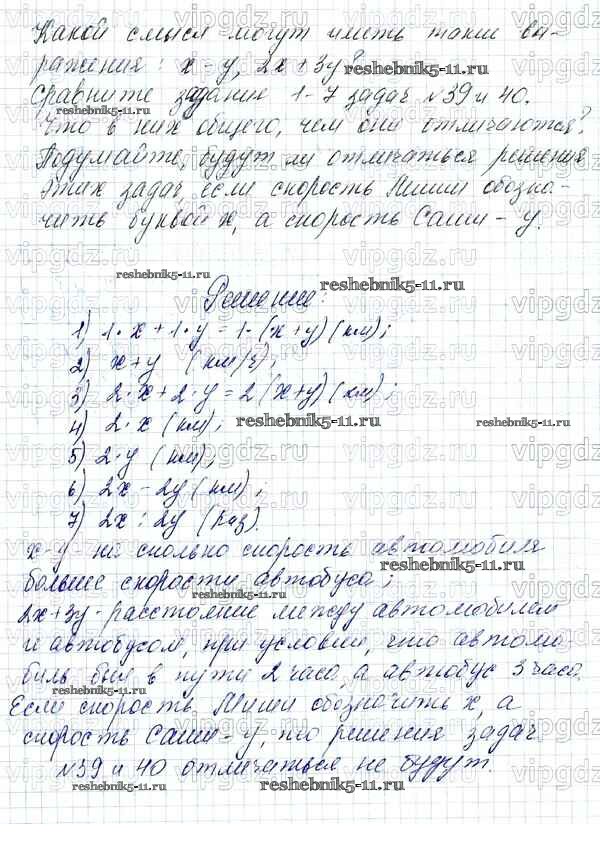 Какой смысл могут иметь такие вы-
ражения: x-y, 2x+3y?
Сравните задания 1-7 задач №39 и 40.
Что в них общего, чем они отличаются?
Подумайте, будут ли отличаться решения
этих задач, если скорость Миши обозна-
чить буквой x, а скорость Саши - y.
Решение:
1) 1·x+1·y=1·(x+y)(км);
2) x+y (км/ч);
3) 2·x+2·y=2(x+y)(км);
4) 2·x (км);
5) 2·y (км);
6) 2x-2y(км);
7) 2x:2y (раз).
x-y на сколько скорость автомобиля
больше скорости автобуса;
2x+3y-расстояние между автомобилем
и автобусом, при условии, что автомо
биль был в пути 2 часа, а автобус 3 часа.
Если скорость Миши обозначить x, а
скорость Саши-y, то решения задач
№39 и 40 отличаться не будут.
vipgdz.ru
reshebnik5-11.ru